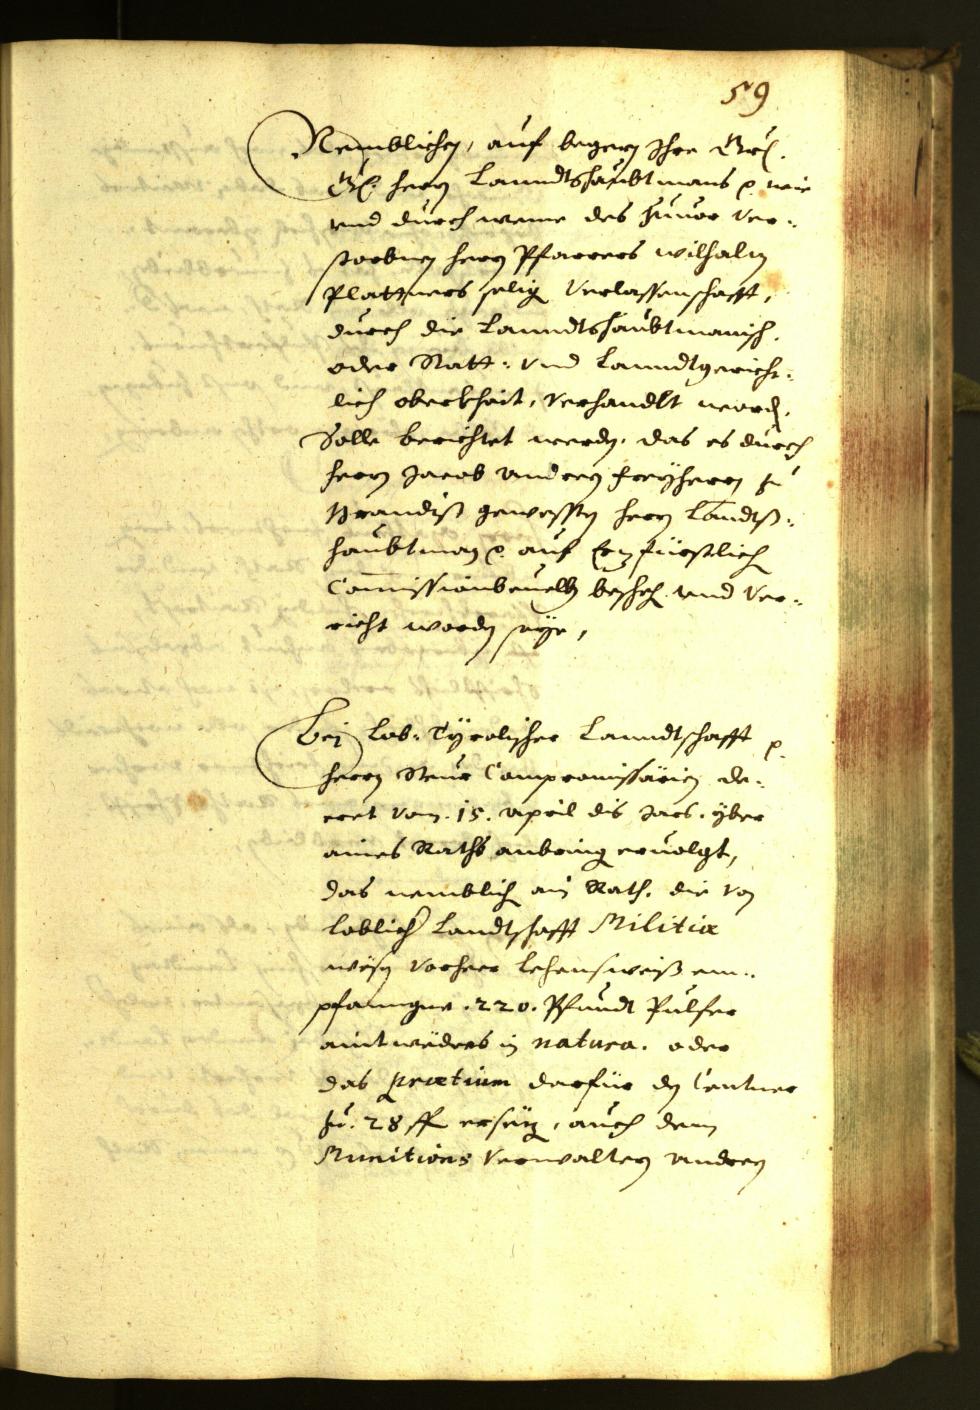 59
Nemblichen, auf begern Ihre Gräf.
Gn. herrn Lanndtshaubtmans p. wie
vnd durch weme des zuuor ver-
storbnen herrn Pfarrers Wilhalm
Plattners selig Verlassenschafft,
durch die Lanndtshaubtmanisch.
oder Statt- vnd Lanndtgericht-
lich oberkhait, verhandlt word.
Solle berichtet werdn. das es durch
herrn Jacob Andreen Freyherrn zu
Brandiß gewessten herrn Landtß-
haubtman p. auf Erzfürstlich
Commissionbeuelh beschech. vnd ver-
richt wordn seye,
Bej Lob. Tyrolischer Lanndtschafft p.
herrn Steur Compromissarien De-
cret vom .15. April dis Jars. yber
aines Raths anbring eruolgt,
das nemblich ain Rath. die von
loblicher Landtschafft Militiæ
wesen vorheer lehensweiß em-
pfanngne .220. Pfundt Pulfer
aintweders in natura. oder
das prætium darfür den Centner
zu .28 fl ersezen, auch dem
Munitions Verwaltern Andreen